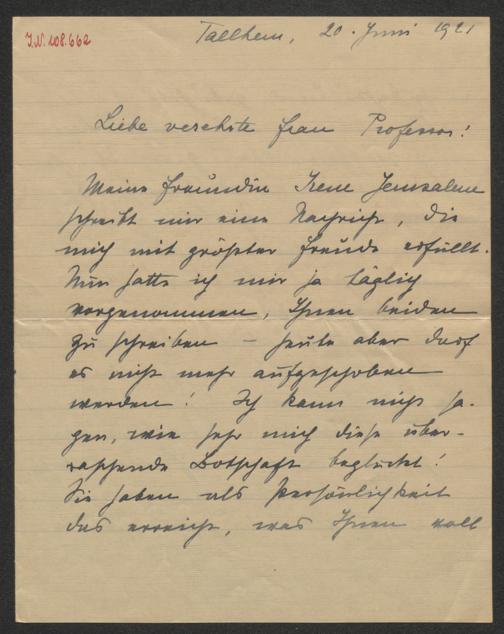 J.N. 108.662
Tallhem, 20. Juni 1921
Liebe verehrte Frau Professor!
Meine Freundin Irene Jerusalem
schreibt mir eine Nachricht, die
mich mit größter Freude erfüllt.
Nun hatte ich mir ja täglich
vorgenommen, Ihnen beiden
zu schreiben – heute aber darf
es nicht mehr aufgeschoben
werden! Ich kann nicht sa-
gen, wie sehr mich diese über-
raschende Botschaft beglückt!
Sie haben als Persönlichkeit
das erreicht, was Ihnen voll